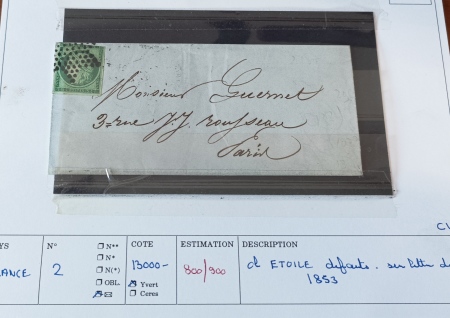 Monsieur Guernet
3 rue J.J. rousseau
Paris
YS N° COTE ESTIMATION DESCRIPTION
ANCE 2 13000- 800/900 ETOILE défauts - sur lettre d
1853
N**
N*
N(*)
OBL.
Yvert
Ceres